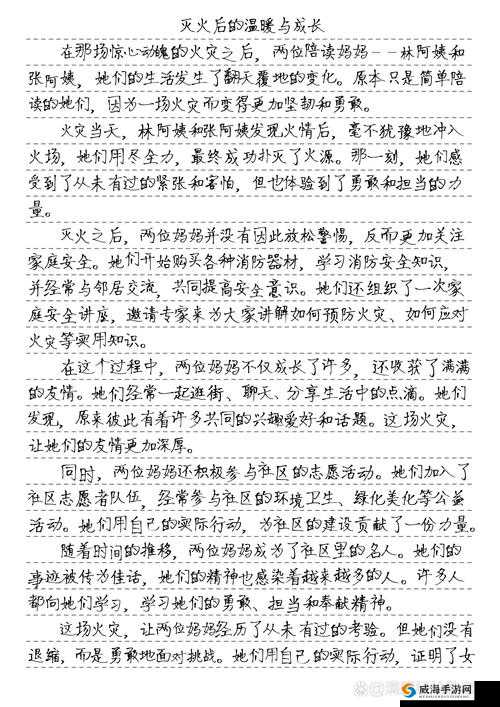 灭火后的温暖与成长
在那场惊心动魄的火灾之后，两位陪读妈妈--林阿姨和
张阿姨，她们的生活发生了翻天覆地的变化。原本只是简单陪
读的她们，因为一场火灾而变得更加坚韧和勇敢。
火灾当天，林阿姨和张阿姨发现火情后，毫不犹豫地冲入
火场，她们用尽全力，最终成功扑灭了火源。那一刻，她们感
受到了从未有过的紧张和害怕，但也体验到了勇敢和担当的力
量。
灭火之后，两位妈妈并没有因此放松警惕，反而更加关注
家庭安全。她们开始购买各种消防器材，学习消防安全知识，
并经常与邻居交流，共同提高安全意识。她们还组织了一次家
庭安全讲座，邀请专家来为大家讲解如何预防火灾、如何应对
火灾等实用知识。
在这个过程中，两位妈妈不仅成长了许多，还收获了满满
的友情。她们经常一起逛街、聊天、分享生活中的点滴。她们
发现，原来彼此有着许多共同的兴趣爱好和话题。这场火灾，
让她们的友情更加深厚。
同时，两位妈妈还积极参与社区的志愿活动。她们加入了
社区志愿者队伍，经常参与社区的环境卫生、绿化美化等公益
活动。她们用自己的实际行动，为社区的建设贡献了一份力量。
随着时间的推移，两位妈妈成为了社区里的名人。她们的
事迹被传为佳话，她们的精神也感染着越来越多的人。许多人
都向她们学习，学习她们的勇敢、担当和奉献精神。
这场火灾，让两位妈妈经历了从未有过的考验。但她们没有
退缩，而是勇敢地面对挑战。她们用自己的实际行动，证明了女
威海手游网